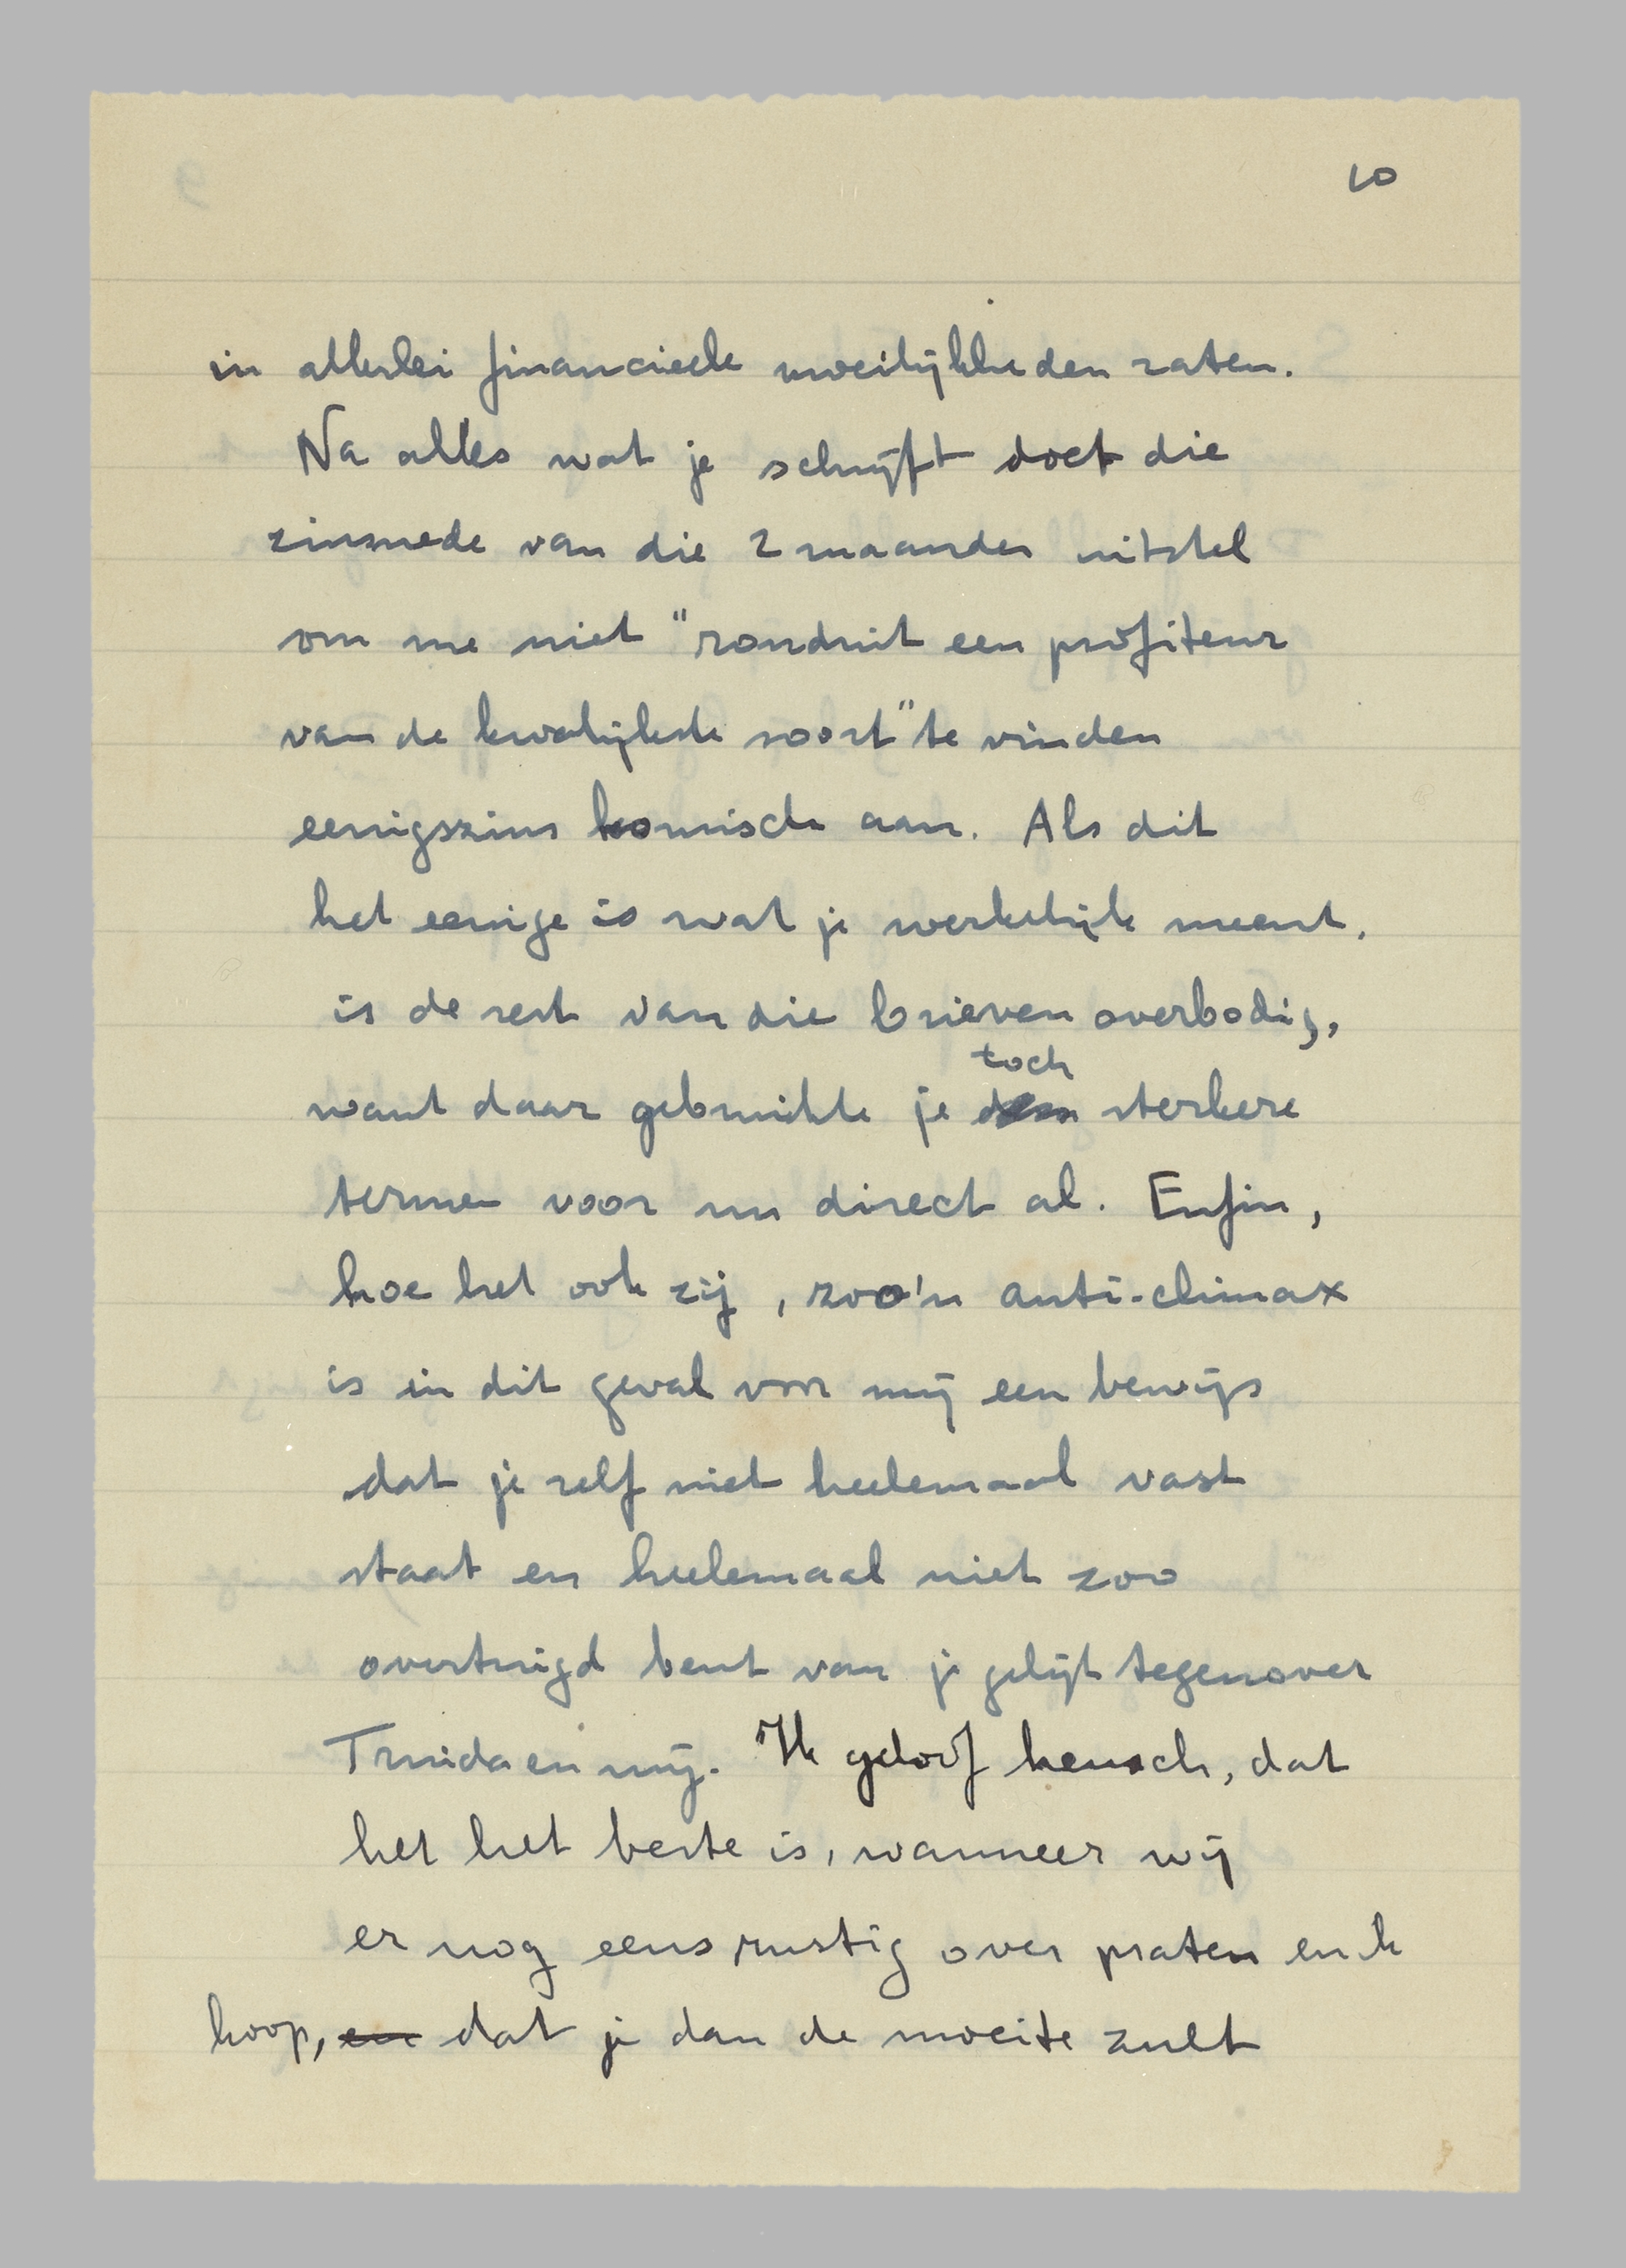 10
in allerlei financieele moeilijkheden zaten.
Na alles wat je schrijft doet die
zinsnede van die 2 maanden uitstel
om me niet "ronduit een profiteur
van de kwalijkste soort" te vinden
eenigszins komisch aan. Als dit
het eenige is wat je werkelijk meent,
is de rest van die brieven overbodig,
toch
want daar gebruikte je sterkere
termen voor nu direct al. Enfin,
hoe het ook zij, zoo'n anti-climax
is in dit geval voor mij een bewijs
dat je zelf niet heelemaal vast
staat en heelemaal niet zoo
overtuigd bent van je gelijk tegenover
Truida en mij. Ik geloof heusch, dat
het het beste is, wanneer wij
er nog eens rustig over praten en ik
hoop, en dat je dan de moeite zult